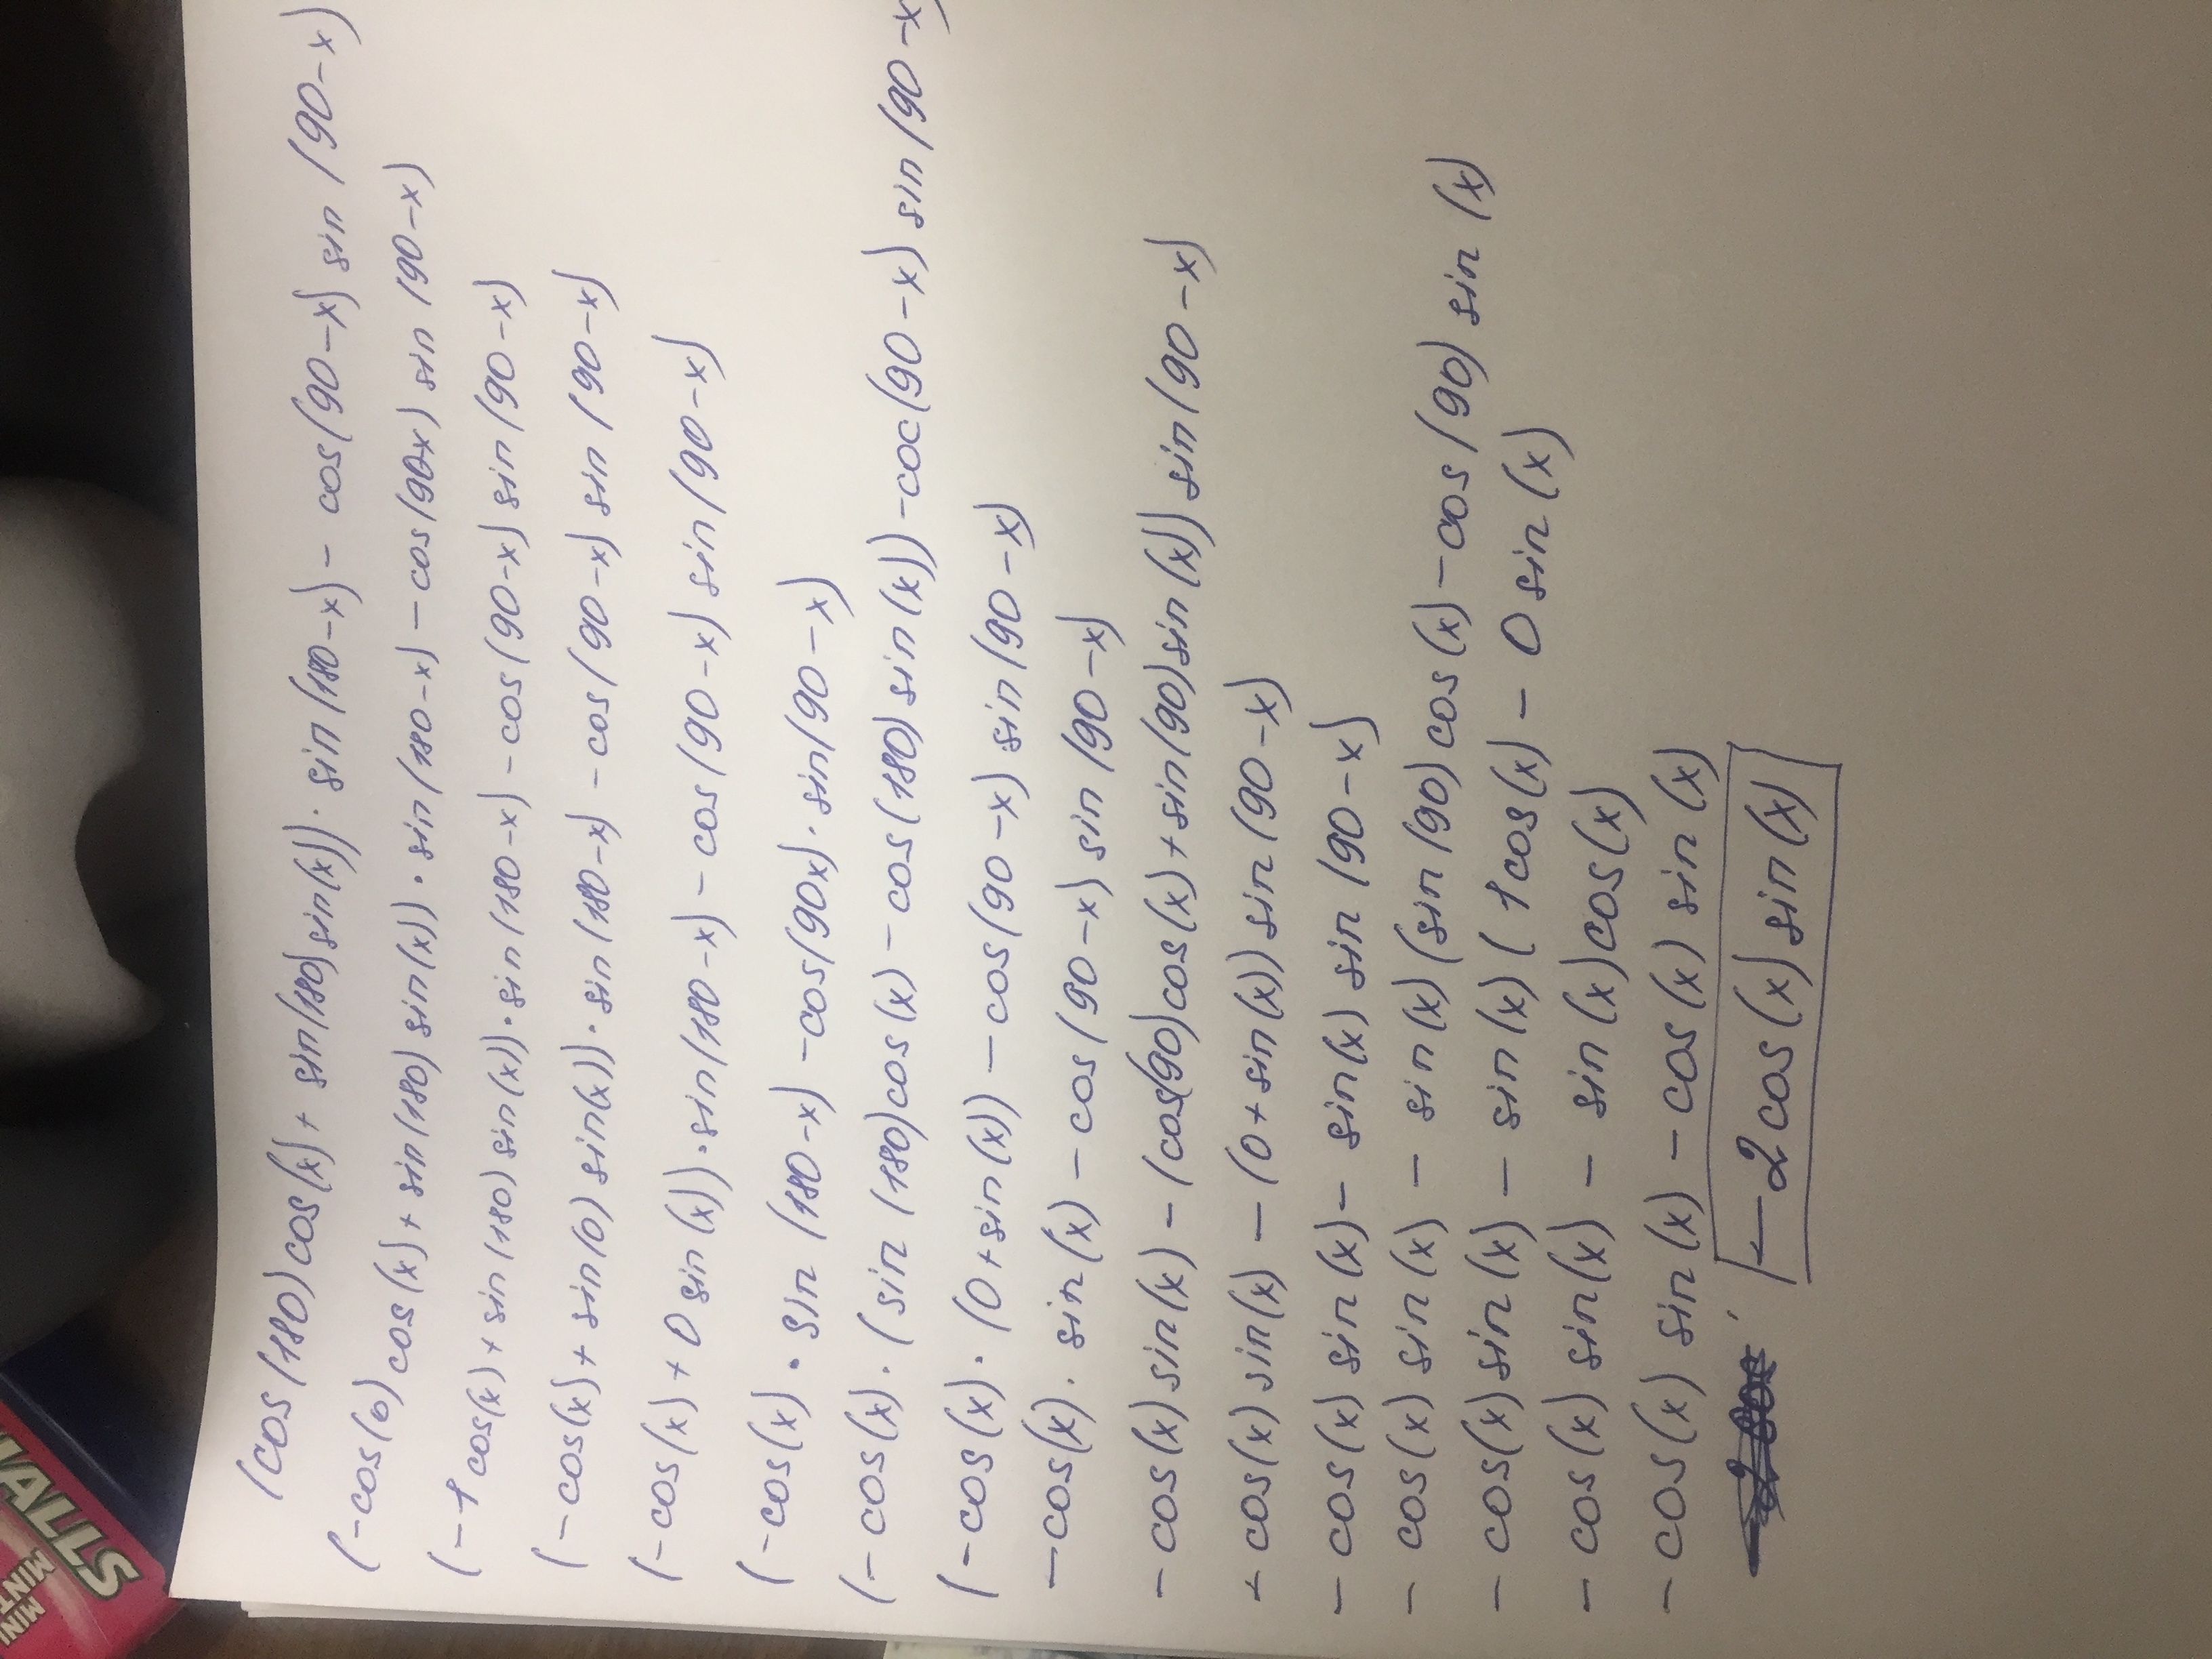 (cos(180)cos(x)+sin(180)sin(x))·sin(180-x)-cos(90-x)sin(90-x)
(-cos(0)cos(x)+sin(180)sin(x))·sin(180-x)-cos(90x)sin(90-x)
(-1cos(x)+sin(180)sin(x))·sin(180-x)-cos(90-x)sin(90-x)
(-cos(x)+sin(0)sin(x))·sin(180-x)-cos(90-x)sin(90-x)
(-cos(x)+0sin(x))·sin(180-x)-cos(90-x)sin(90-x)
(-cos(x)·sin(180-x)-cos(90x)·sin(90-x)
(-cos(x)·(sin(180)cos(x)-cos(180)sin(x))-coc(90-x)sin(90-x)
(-cos(x)·(0+sin(x))-cos(90-x)sin(90-x)
-cos(x)·sin(x)-cos(90-x)sin(90-x)
-cos(x)sin(x)-(cos(90)cos(x)+sin(90)sin(x))sin(90-x)
-cos(x)sin(x)-(0+sin(x))sin(90-x)
-cos(x)sin(x)-sin(x)sin(90-x)
-cos(x)sin(x)-sin(x)(sin(90)cos(x)-cos(90)sin(x)
-cos(x)sin(x)-sin(x)(1cos(x)-0sin(x)
-cos(x)sin(x)-sin(x)cos(x)
-cos(x)sin(x)-cos(x)sin(x)
-2cos(x)sin(x)
HALLS
MINI
MINT